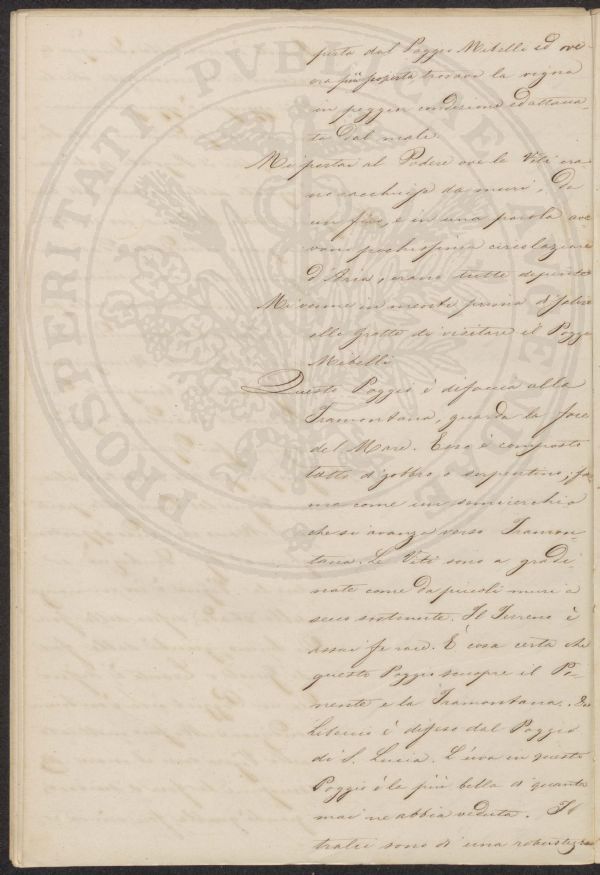 posta dal Poggio Mibelli ed ove
era più posposta trovavo la vigna
in peggior condizione ed attacca-
ta dal male.
Mi portai al Podere ove le Viti era
no racchiuse da muri, da
un fino, e in una parola ave
vano pochissima circolazione
d'Aria, erano tutte
Mi venne in mente prima di salire
alle Grotte di visitare il Poggio
Mibelli
Questo Poggio è di faccia alla
Tramontana, guarda la foce
del Mare. Esso è composto
tutto di gabbro o serpentino; for
ma come un semicerchio
che si avanza verso Tramon-
tana. Le Viti sono a gradi-
nate come da piccoli muri a
secco sostenute. Il Terreno è
assai ferace. È cosa certa che
questo Poggio scuopre il Po-
nente e la Tramontana. Da
Libeccio è difeso dal Poggio
di S. Lucia. L'uva in questo
Poggio è la più bella di quanta
mai ne abbia veduta. I
tralci sono di una robustezza
PROSPERITATI PVBLICAE AVGENDAE